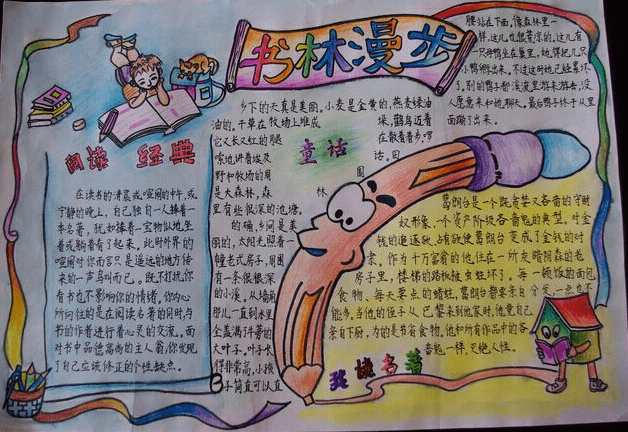 书林漫步
阅读 经典
在读书的清晨或喧闹的中午,或
宁静的晚上,自己独自一人捧着一
本名著,犹如捧着一宝物似地,坐
着或躺着看了起来,此时外界的
喧闹对你而言只是遥远的地方传
来的一声鸟叫而已。既不打扰你
看书也不影响你的情绪,你内心
所向往的是在阅读名著的同时与
书的作者进行着心灵的交流。面
对书中品德高尚的主人翁,你发现
了自己应该修正的个性缺点。
童话
乡下的天真是美丽。小麦是金黄的,燕麦绿油
油的。干草在牧场上堆成 垛,鹳鸟迈着
它又长又红的腿 在散着步,啰
嗦地讲着埃及 话。田
野和牧场的周 围
是大森林,森 林
里有些很深的池塘。
的确,乡间是美
丽的,太阳光照着一
幢老式房子,周围
有一条很深
的小溪。从墙角
那儿一直到水里,
全盖满了牛蒡的
大叶子。叶子长
得非常高,小孩
子简直可以直
腰站在下面,像森林里一
样,这儿也很荒凉的。这儿有
一只母鸭坐在窠里,她得把几只
小鸭孵出来。不过这时她已经累坏
了。别的鸭子都在溪流里游来游去,没
人愿意来和她聊天。最后鸭子终于从里
面蹦了出来。
葛朗台是一个既贪婪又吝啬的守财
奴形象,一个资产阶级吝啬鬼的典型。对金
钱的追逐欲、占有欲使葛朗台变成了金钱的对
象,作为千万富翁的他,住在一所灰暗阴森的老
房子里,楼梯的踏板被虫蛀坏了。每一顿饭的面包、
食物、每天要点的蜡烛,葛朗台都要亲自分发一点也不
能多,当他的侄子从巴黎来到他家时,他竟自己
亲自下厨,为的是节省食物。他和所有作品中的吝
啬鬼一样,灭绝人性。
我读名著